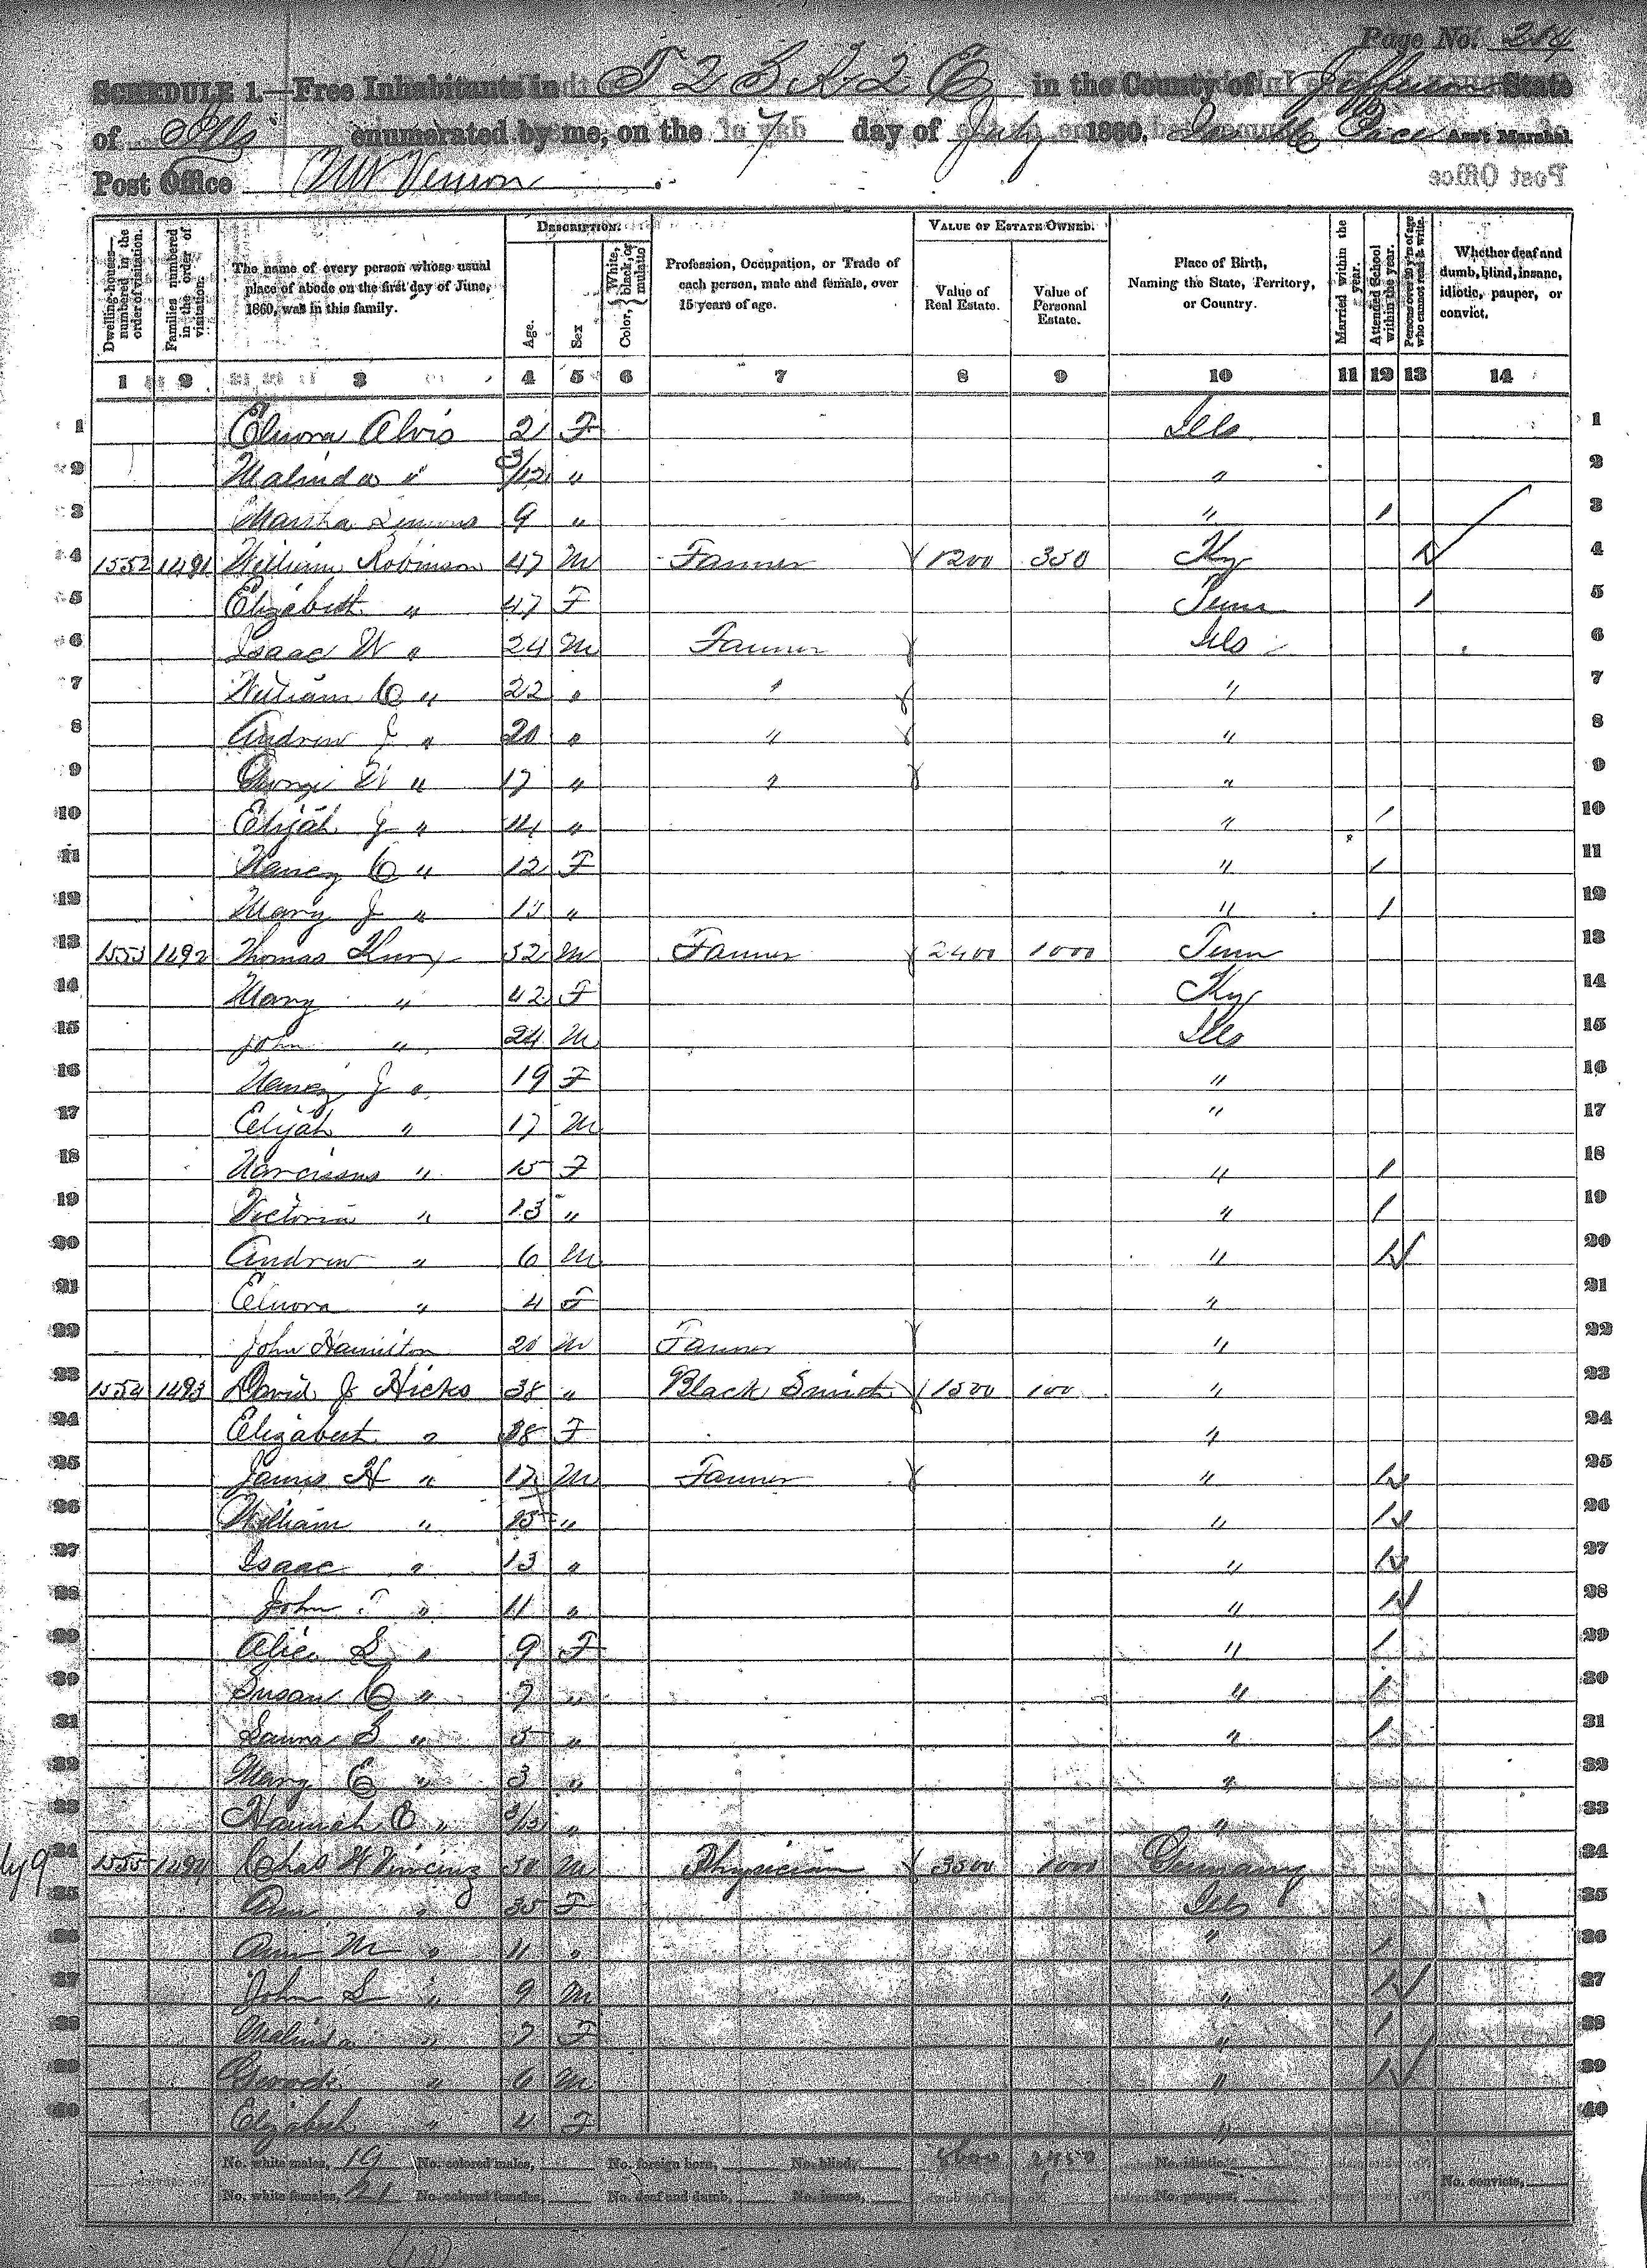 Page No. 254
SCHEDULE 1.—Free Inhabitants in T 2 S R 2 E in the County of Jefferson State
of Ills enumerated by me, on the 7 day of July 1860. Pace Ass't Marshal.
Post Office Mt Vernon
Dwelling-houses—numbered in the order of visitation.
Families numbered in the order of visitation.
The name of every person whose usual place of abode on the first day of June, 1860, was in this family.
DESCRIPTION.
Age.
Sex
Color, White, black, or mulatto
Profession, Occupation, or Trade of each person, male and female, over 15 years of age.
VALUE OF ESTATE OWNED.
Value of Real Estate.
Value of Personal Estate.
Place of Birth, Naming the State, Territory, or Country.
Married within the year.
Attended School within the year.
Persons over 20 y'rs of age who cannot read & write.
Whether deaf and dumb, blind, insane, idiotic, pauper, or convict.
1 2 3 4 5 6 7 8 9 10 11 12 13 14
1 Elnora Alvis 2 F Ills 1
2 Malinda " 3/12 " " 2
3 Martha 9 " " / 3
4 1552 1491 William Robinson 47 M Farmer 1200 350 Ky / 4
5 Elizabeth " 47 F Tenn / 5
6 Isaac W " 24 M Farmer Ills 6
7 William C " 22 " " " 7
8 Andrew J " 20 " " " 8
9 George W " 17 " " " 9
10 Elijah J " 14 " " / 10
11 Nancy C " 12 F " / 11
12 Mary J " " " / 12
13 1553 1492 Thomas 52 M Farmer 2400 1000 Tenn 13
14 Mary " 42 F Ky 14
15 John " 24 M Ills 15
16 Nancy J " 19 F " 16
17 Elijah " 17 M " 17
18 Narcissus " 15 F " / 18
19 Victoria " 13 " " / 19
20 Andrew " 6 M " / 20
21 Elnora " 4 F " 21
22 John Hamilton 20 M Farmer " 22
23 1554 1493 David J Hicks 38 " Black Smith 1500 100 " 23
24 Elizabeth " 38 F " 24
25 James H " 17 M Farmer " / 25
26 William " 15 " " / 26
27 Isaac " 13 " " / 27
28 John T " 11 " " / 28
29 Alice S " 9 F " / 29
30 Susan C " 7 " " / 30
31 Laura S " 5 " " / 31
32 Mary E " 3 " " 32
33 Hannah E " 3/12 " " 33
34 1555 1494 Chas W 50 M Physician 3500 1000 Germany 34
35 Ann " 35 F Ills 35
36 Ann M " 11 " " / 36
37 John S " 9 M " / 37
38 Malinda " 7 F " / 38
39 " 6 M " / 39
40 Elizabeth " 4 F " 40
No. white males, 19 No. colored males, No. foreign born, No. blind, 8600 2450 No. idiotic,
No. white females, 21 No. colored females, No. deaf and dumb, No. insane, No. paupers, No. convicts,